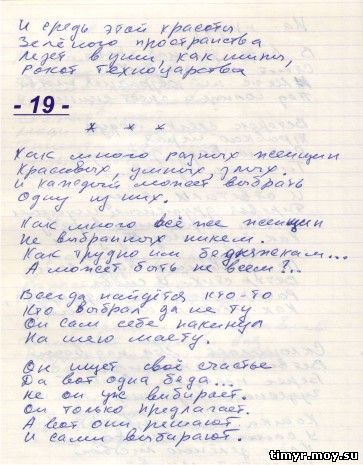 И средь этой красоты
Зелёного пространства
Лезет в уши, как шипы,
Рокот техноцарства
- 19 -
* * *
Как много разных женщин
Красивых, умных, злых.
И каждый может выбрать
Одну из них.
Как много всё же женщин
Не выбранных никем.
Как трудно им бедняжекам...
А может быть не всем?..
Всегда найдутся кто-то
Кто выбрал да не ту
Он сам себе накинул
На шею маету.
Он ищет своё счастье
Да вот одна беда...
Не он уж выбирает.
Он только предлагает.
А вот они решают
И сами выбирают.
timyr.moy.su